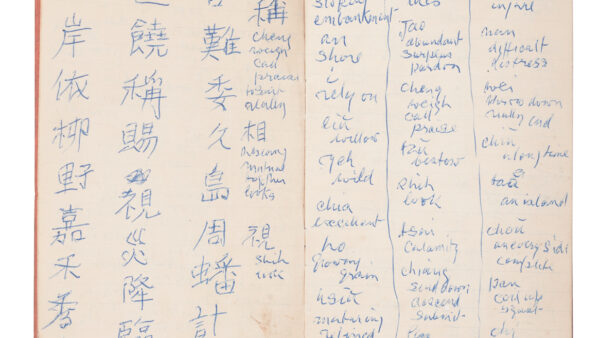 岸
依
柳
野
嘉
禾
秀
饒
稱
賜
視
災
降
臨
難
委
久
島
周
蟠
計
稱
cheng
weigh
call
praise
相
mutual
looks
視
shih
look
sloping
embankment
an
shore
i
rely on
liu
willow
yeh
wild
chia
excellent
ho
growing
grain
hsiu
maturing
refined
jao
abundant
surplus
pardon
cheng
weigh
call
praise
tzu
bestow
shih
look
tsai
calamity
chiang
send down
descend
submit
lin
injure
nan
difficult
distress
wei
throw down
really end
chiu
a long time
tao
an island
chou
on every side
complete
pan
coil up
squat
chi